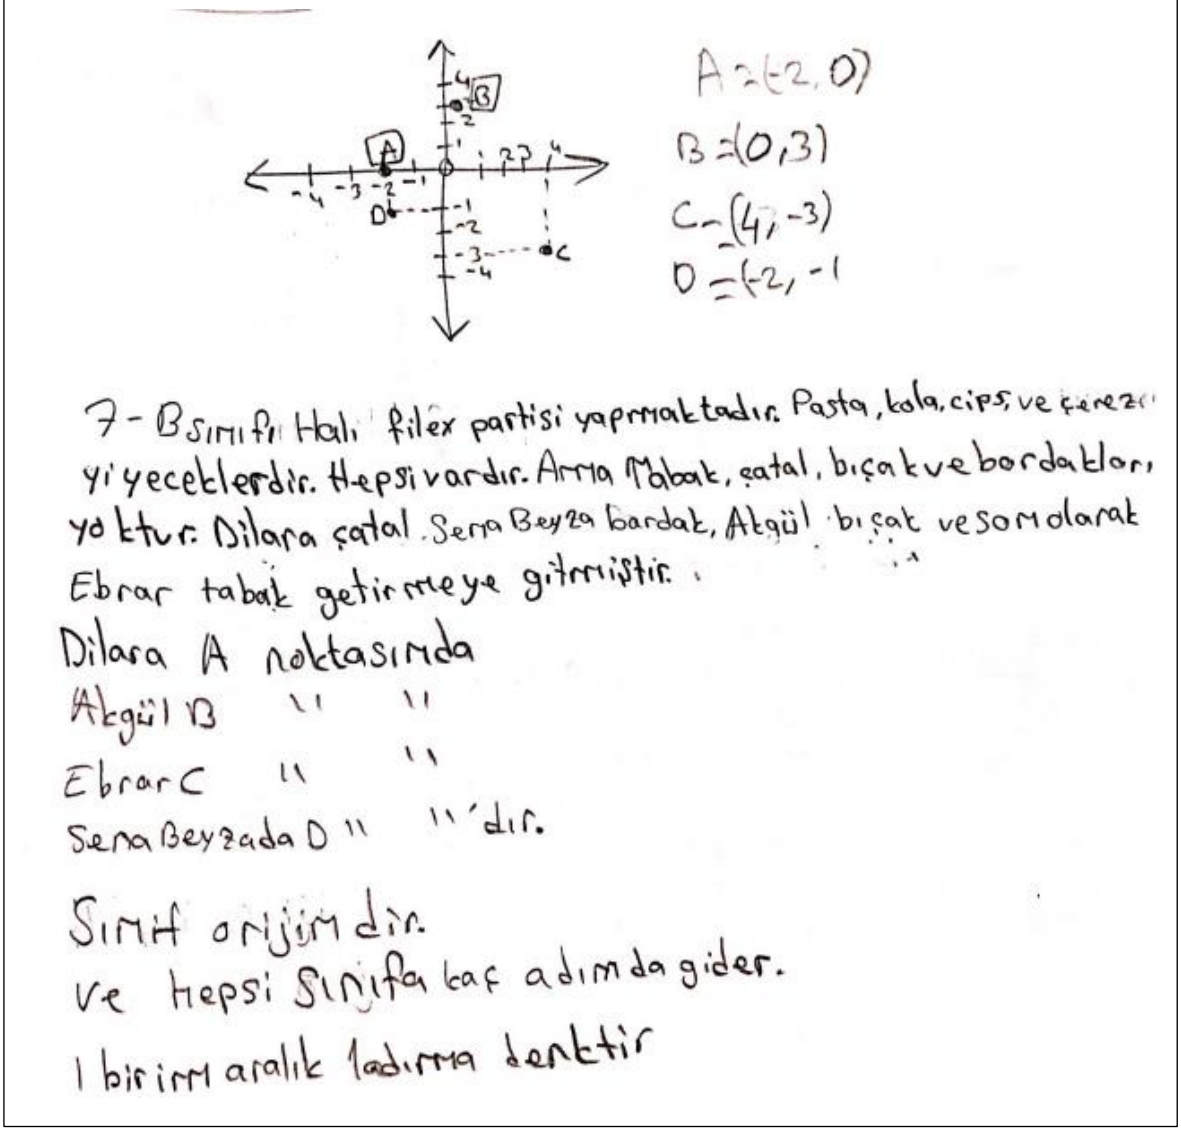 4
B
2
1
A
-4 -3 -2 -1 1 2 3 4
D
-1
-2
-3
C
-4
A=(-2,0)
B=(0,3)
C=(4,-3)
D=(-2,-1
7-B sınıfı Halı filex partisi yapmaktadır. Pasta, kola, cips, ve çerez
yiyeceklerdir. Hepsi vardır. Ama Tabak, çatal, bıçak ve bardakları
yoktur. Dilara çatal. Sena Beyza bardak, Akgül bıçak ve son olarak
Ebrar tabak getirmeye gitmiştir.
Dilara A noktasında
Akgül B " "
Ebrar C " "
Sena Beyzada D " "'dır.
Sınıf orijindir.
ve hepsi Sınıfa kaç adımda gider.
1 birim aralık 1adıma denktir